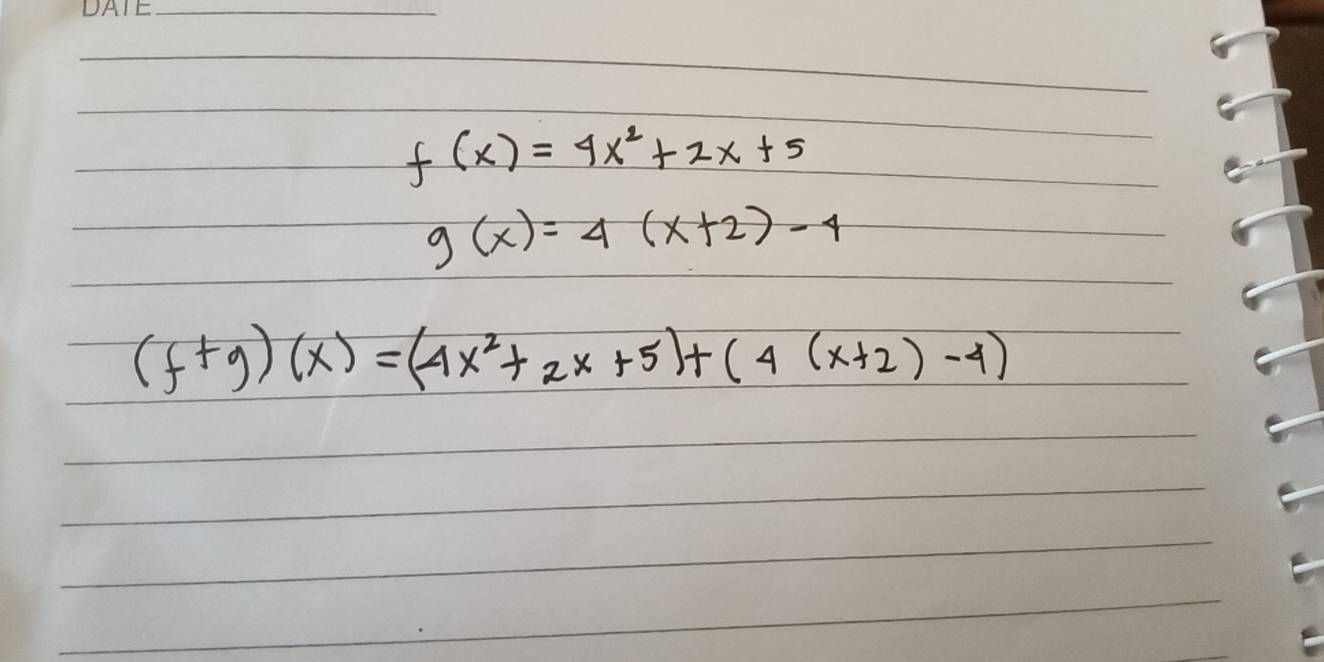 DATE
f(x) = 4x² + 2x + 5
g(x) = 4 (x+2) - 4
(f+g)(x) = (4x² + 2x + 5) + (4 (x+2) - 4)